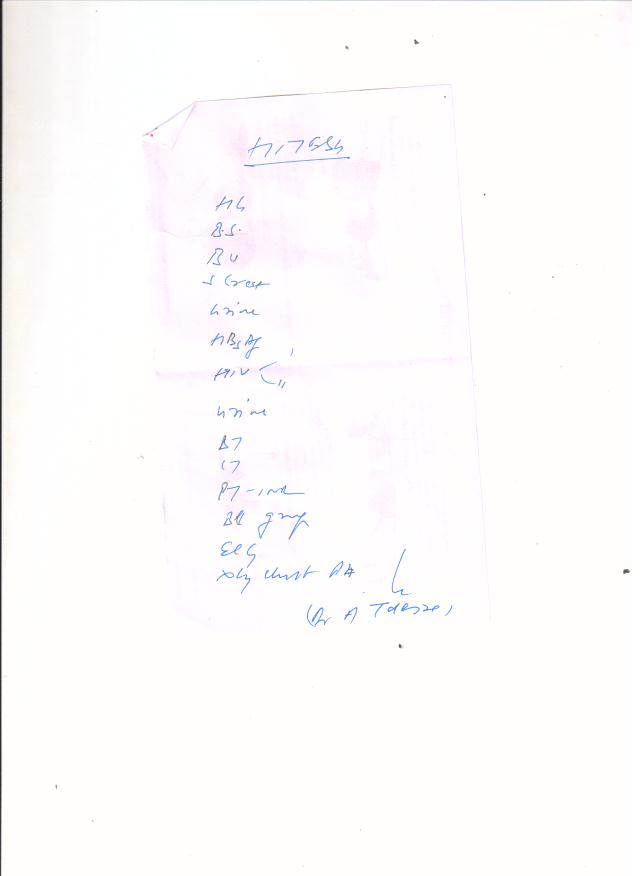 HITESH
Hb
B.S.
BU
S Creat
Urine
HBsAg
HIV ( I
II
Urine
BT
CT
PT-INR
Bl group
ECG
Xray chest PA
(Dr A